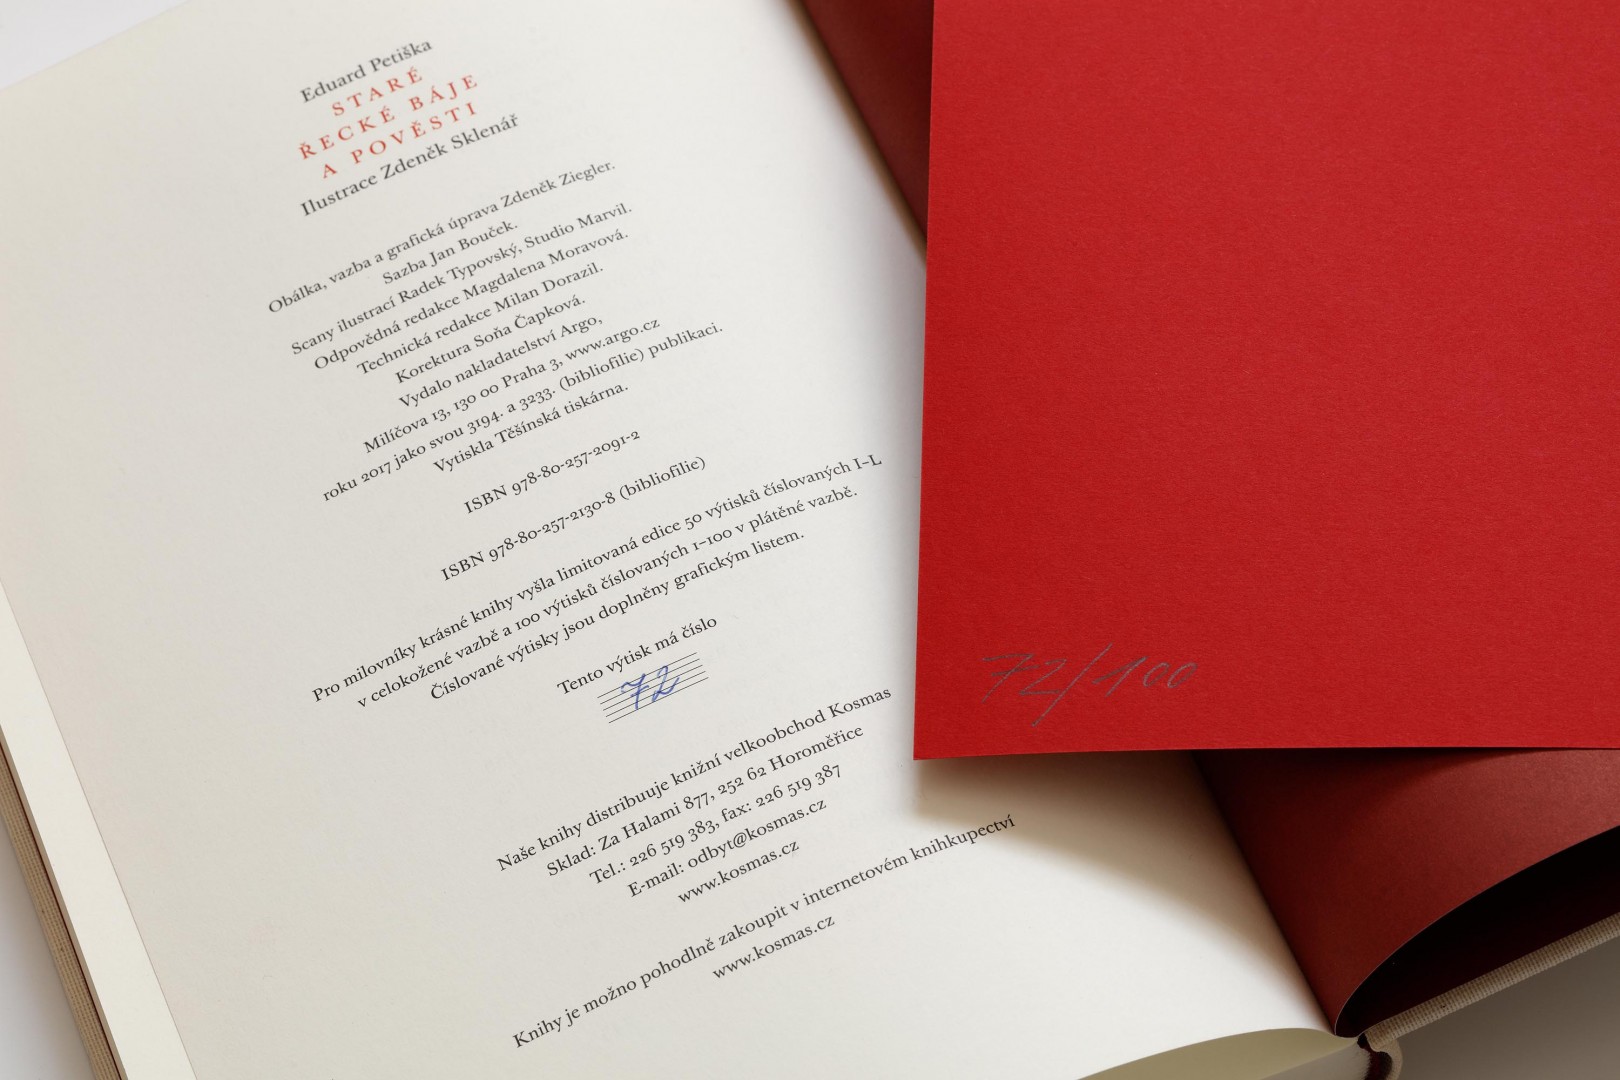 Eduard Petiška
STARÉ
ŘECKÉ BÁJE
A POVĚSTI
Ilustrace Zdeněk Sklenář
Obálka, vazba a grafická úprava Zdeněk Ziegler.
Sazba Jan Bouček.
Scany ilustrací Radek Typovský, Studio Marvil.
Odpovědná redakce Magdalena Moravová.
Technická redakce Milan Dorazil.
Korektura Soňa Čapková.
Vydalo nakladatelství Argo,
Milíčova 13, 130 00 Praha 3, www.argo.cz
roku 2017 jako svou 3194. a 3233. (bibliofilie) publikaci.
Vytiskla Těšínská tiskárna.
ISBN 978-80-257-2091-2
ISBN 978-80-257-2130-8 (bibliofilie)
Pro milovníky krásné knihy vyšla limitovaná edice 50 výtisků číslovaných I–L
v celokožené vazbě a 100 výtisků číslovaných 1–100 v plátěné vazbě.
Číslované výtisky jsou doplněny grafickým listem.
Tento výtisk má číslo
72
Naše knihy distribuuje knižní velkoobchod Kosmas
Sklad: Za Halami 877, 252 62 Horoměřice
Tel.: 226 519 383, fax: 226 519 387
E-mail: odbyt@kosmas.cz
www.kosmas.cz
Knihy je možno pohodlně zakoupit v internetovém knihkupectví
www.kosmas.cz
72/100